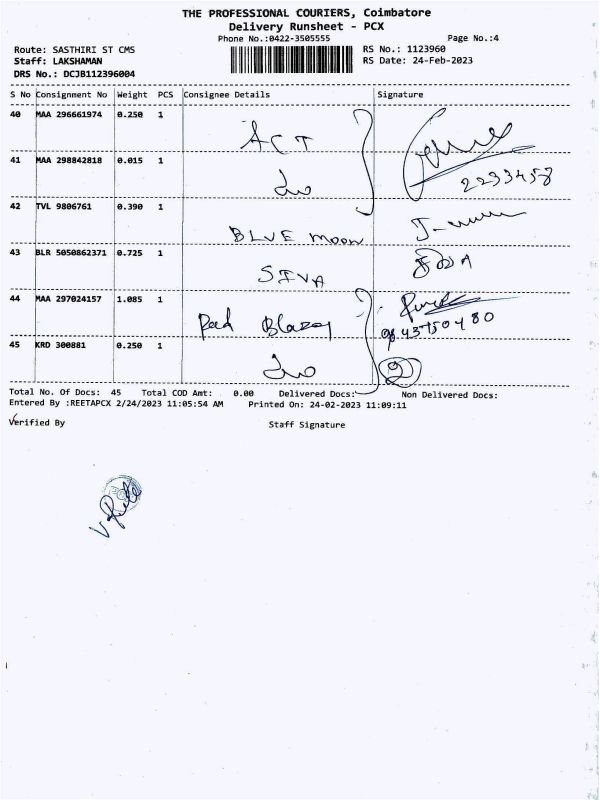 THE PROFESSIONAL COURIERS, Coimbatore
Delivery Runsheet - PCX
Phone No.:0422-3505555 Page No.:4
Route: SASTHIRI ST CMS RS No.: 1123960
Staff: LAKSHAMAN RS Date: 24-Feb-2023
DRS No.: DCJB112396004
S No Consignment No Weight PCS Consignee Details Signature
40 MAA 296661974 0.250 1
ACT
41 MAA 298842818 0.015 1
2233458
42 TVL 9806761 0.390 1
BLUE MOON
43 BLR 5050862371 0.725 1
SIVA
44 MAA 297024157 1.085 1
Red 9843750480
45 KRD 300881 0.250 1
2
Total No. Of Docs: 45 Total COD Amt: 0.00 Delivered Docs: Non Delivered Docs:
Entered By :REETAPCX 2/24/2023 11:05:54 AM Printed On: 24-02-2023 11:09:11
Verified By Staff Signature